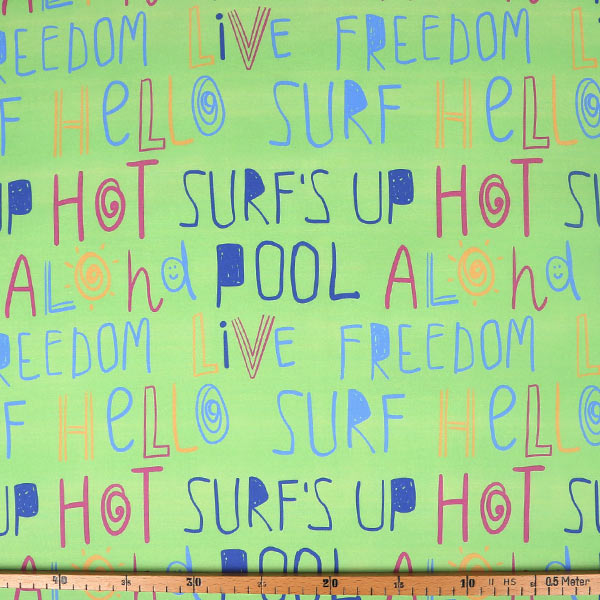 REEDOM LiVE FREEDOM Li
F HeLLO SURF HeLLO
UP HOT SURF'S UP HOT SU
ALOhd POOL ALOhd
REEDOM LiVE FREEDOM Li
F HeLLO SURF HeLLO
UP HOT SURF'S UP HOT SU
POOL
40 35 30 25 20 15 10 II HS 0.5 Meter